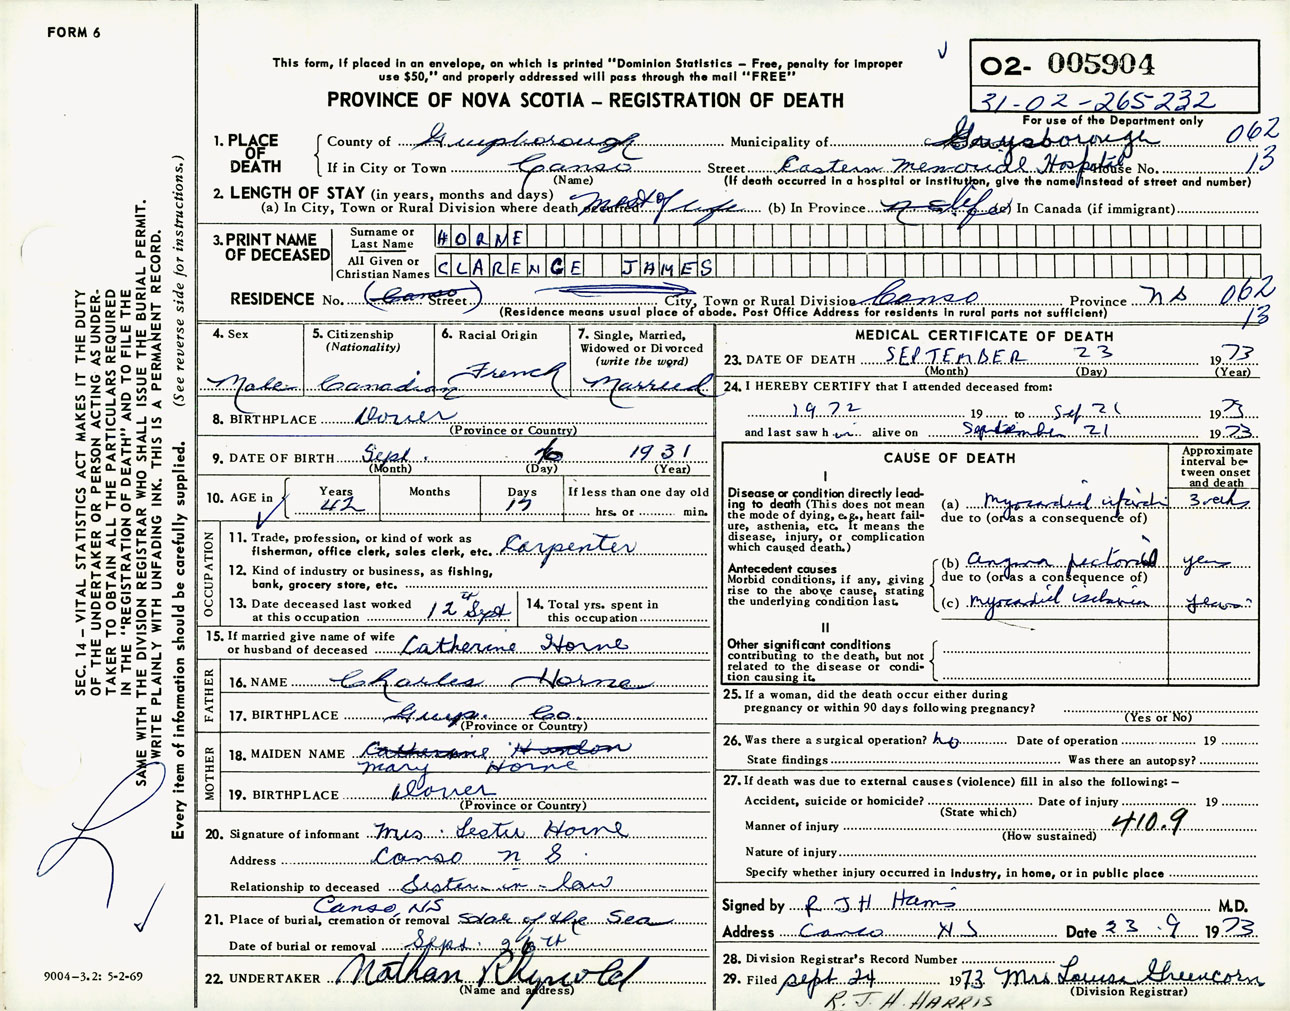 FORM 6
This form, if placed in an envelope, on which is printed "Dominion Statistics – Free, penalty for improper
use $50," and properly addressed will pass through the mail "FREE"
PROVINCE OF NOVA SCOTIA – REGISTRATION OF DEATH
O2- 005904
31-02-265232
For use of the Department only
1. PLACE OF DEATH County of Guysborough Municipality of Guysborough 062
If in City or Town Canso Street Eastern Memorial Hospital House No. 13
(Name) (If death occurred in a hospital or institution, give the name instead of street and number)
2. LENGTH OF STAY (in years, months and days)
(a) In City, Town or Rural Division where death occurred most of life (b) In Province (c) In Canada (if immigrant)
3. PRINT NAME OF DECEASED Surname or Last Name HORNE
All Given or Christian Names CLARENCE JAMES
RESIDENCE No. (Canso Street) City, Town or Rural Division Canso Province NS 062
13
(Residence means usual place of abode. Post Office Address for residents in rural parts not sufficient)
4. Sex Male
5. Citizenship (Nationality) Canadian
6. Racial Origin French
7. Single, Married, Widowed or Divorced (write the word) Married
8. BIRTHPLACE Dover
(Province or Country)
9. DATE OF BIRTH Sept. 6 1931
(Month) (Day) (Year)
10. AGE in Years 42 Months Days 17 If less than one day old
hrs. or min.
OCCUPATION
11. Trade, profession, or kind of work as
fisherman, office clerk, sales clerk, etc. Carpenter
12. Kind of industry or business, as fishing,
bank, grocery store, etc.
13. Date deceased last worked
at this occupation 12th Sept
14. Total yrs. spent in
this occupation
15. If married give name of wife
or husband of deceased Catherine Horne
FATHER
16. NAME Charles Horne
17. BIRTHPLACE Guys. Co.
(Province or Country)
MOTHER
18. MAIDEN NAME Catherine
Mary Horne
19. BIRTHPLACE Dover
(Province or Country)
20. Signature of informant Mrs. Lester Horne
Address Canso N S.
Relationship to deceased Sister-in-law
Canso NS
21. Place of burial, cremation or removal Star of the Sea
Date of burial or removal Sept. 26th
22. UNDERTAKER Nathan Rhynold
(Name and address)
MEDICAL CERTIFICATE OF DEATH
23. DATE OF DEATH SEPTEMBER 23 1973
(Month) (Day) (Year)
24. I HEREBY CERTIFY that I attended deceased from:
1972 19 to Sep 21 1973
and last saw him alive on September 21 1973
CAUSE OF DEATH
Approximate interval between onset and death
I
Disease or condition directly leading to death (This does not mean the mode of dying, e.g., heart failure, asthenia, etc. It means the disease, injury, or complication which caused death.)
(a) myocardial infarct 3 weeks
due to (or as a consequence of)
Antecedent causes
Morbid conditions, if any, giving rise to the above cause, stating the underlying condition last.
(b) Angina pectoris years
due to (or as a consequence of)
(c) myocardial ischaemia years
II
Other significant conditions
contributing to the death, but not related to the disease or condition causing it.
25. If a woman, did the death occur either during
pregnancy or within 90 days following pregnancy?
(Yes or No)
26. Was there a surgical operation? no Date of operation 19
State findings Was there an autopsy?
27. If death was due to external causes (violence) fill in also the following: –
Accident, suicide or homicide? Date of injury 19
(State which)
Manner of injury 410.9
(How sustained)
Nature of injury
Specify whether injury occurred in industry, in home, or in public place
Signed by R J H Harris M.D.
Address Canso N S Date 23 . 9 1973
28. Division Registrar's Record Number
29. Filed Sept 24 1973 Mrs Louise Greencorn
(Division Registrar)
R. J. H. HARRIS
SEC. 14 – VITAL STATISTICS ACT MAKES IT THE DUTY
OF THE UNDERTAKER OR PERSON ACTING AS UNDER-
TAKER TO OBTAIN ALL THE PARTICULARS REQUIRED
IN THE "REGISTRATION OF DEATH" AND TO FILE THE
SAME WITH THE DIVISION REGISTRAR WHO SHALL ISSUE THE BURIAL PERMIT.
WRITE PLAINLY WITH UNFADING INK. THIS IS A PERMANENT RECORD.
Every item of information should be carefully supplied. (See reverse side for instructions.)
9004–3.2: 5-2-69